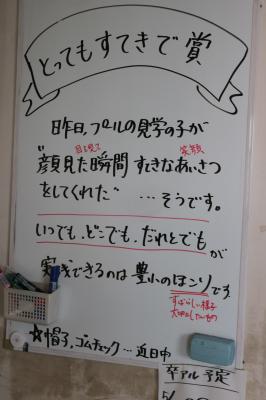 とってもすてきで賞
昨日、プールの見学の子が
目を見て 笑顔
"顔見た瞬間 すてきなあいさつ
をしてくれた" …そうです。
いつでも、どこでも、だれとでもが
実践できるのは 豊小のほこりです。
すばらしい様子
大切にしたいもの
☆帽子、ゴムチェック…近日中
卒アル予定